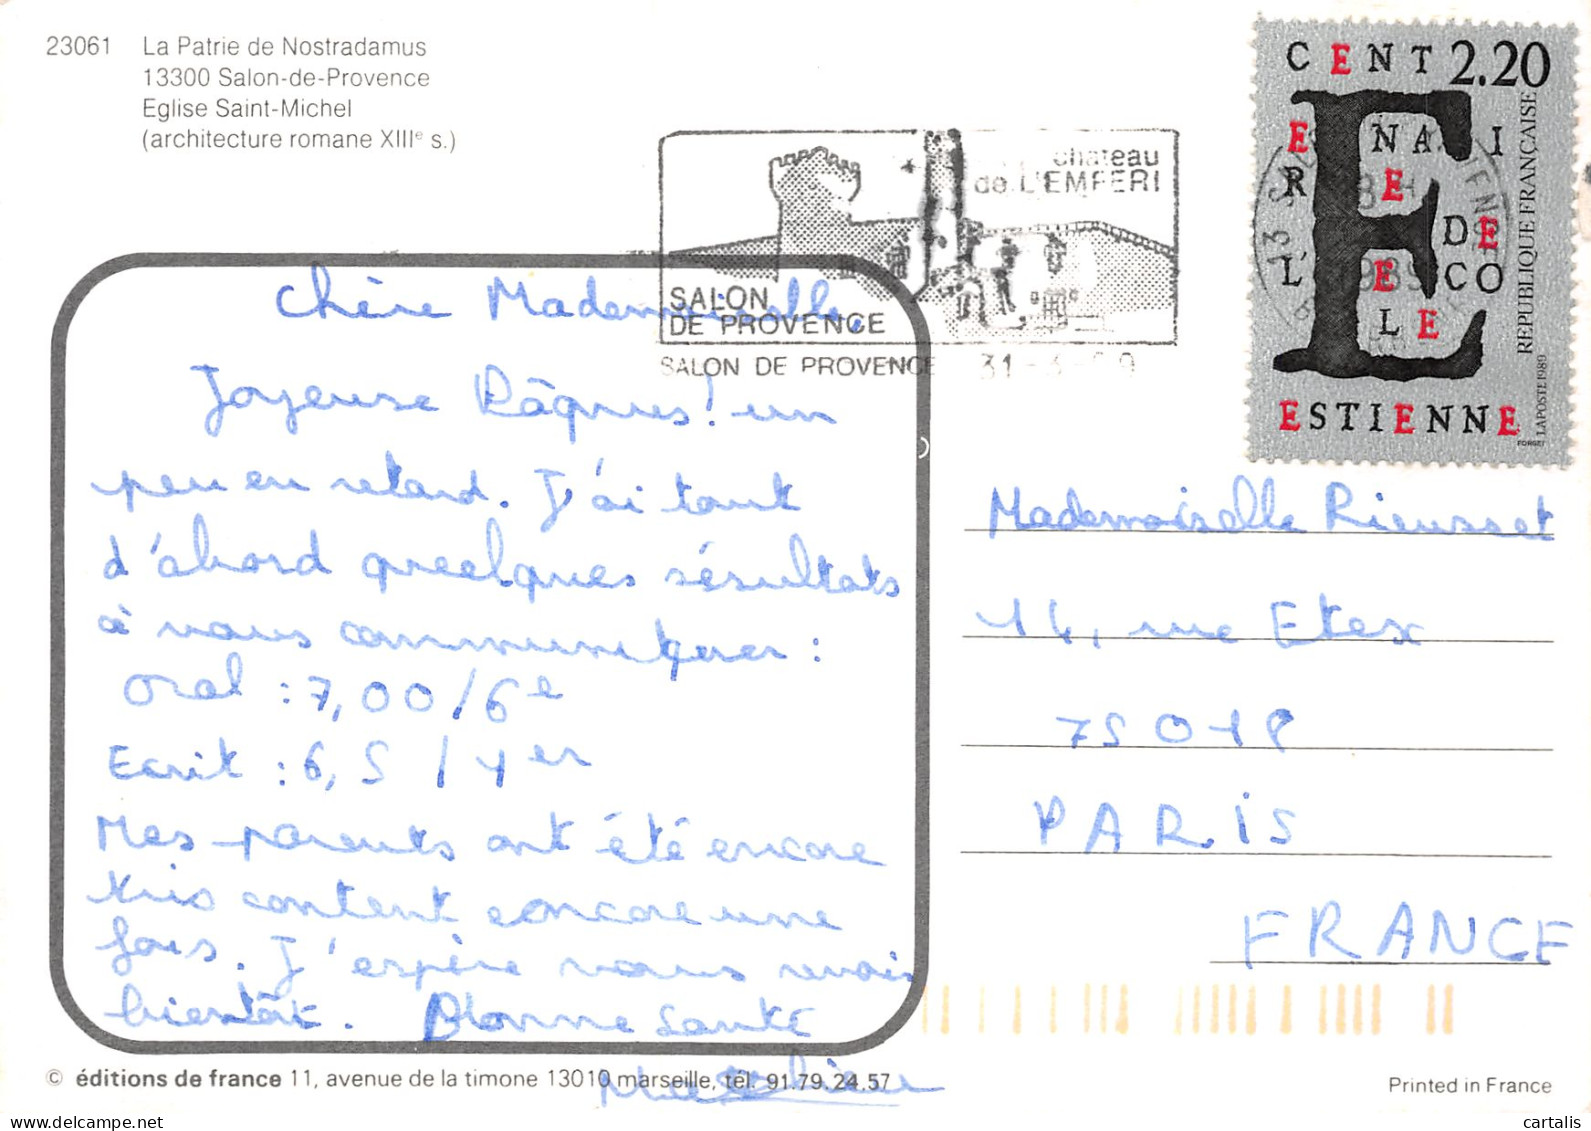 23061 La Patrie de Nostradamus
13300 Salon-de-Provence
Eglise Saint-Michel
(architecture romane XIIIe s.)
château
de L'EMPERI
SALON
DE PROVENCE
SALON DE PROVENCE 31-3-89
CENT 2.20
ENAI
RE
DE
L'ECO
LE
ESTIENNE
REPUBLIQUE FRANÇAISE
LA POSTE 1989
FORGET
Chère Mademoiselle,
Joyeuse Pâques! un
peu en retard. J'ai tout
d'abord quelques résultats
à vous communiquer :
Oral : 7,00/6e
Ecrit : 6,5 / 1er
Mes parents ont été encore
très content encore une
fois. J'espère vous revoir
bientôt. Bonne santé
Matthieu
Mademoiselle Rieusset
14, rue Etex
75018
PARiS
FRANCE
© éditions de france 11, avenue de la timone 13010 marseille, tél. 91.79.24.57
Printed in France
cartalis